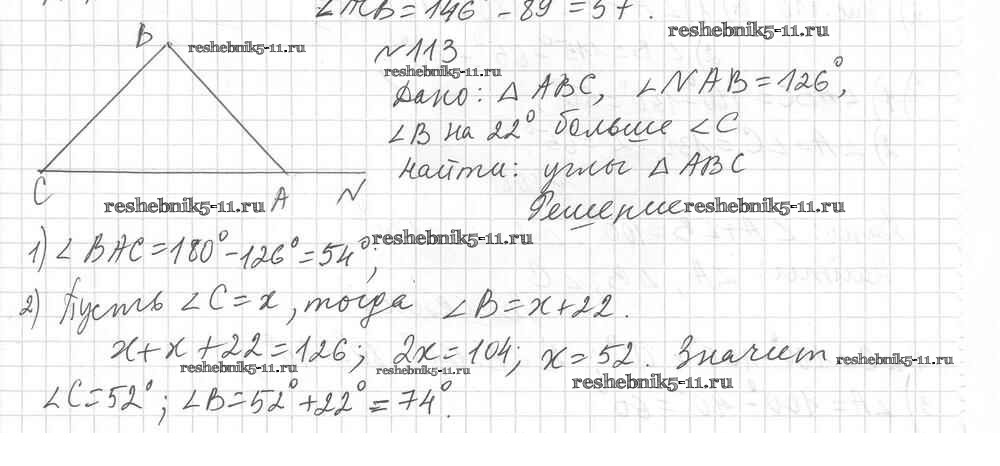 = 146° - 89° = 57°.
B
reshebnik5-11.ru
reshebnik5-11.ru
№113
reshebnik5-11.ru
Дано: △ABC, ∠NAB = 126°,
∠B на 22° больше ∠C
Найти: углы △ABC
C
A
N
reshebnik5-11.ru
Решение
reshebnik5-11.ru
1) ∠BAC = 180° - 126° = 54°;
reshebnik5-11.ru
2) Пусть ∠C = x, тогда ∠B = x + 22.
x + x + 22 = 126; 2x = 104; x = 52. Значит
reshebnik5-11.ru
reshebnik5-11.ru
reshebnik5-11.ru
reshebnik5-11.ru
∠C = 52°; ∠B = 52° + 22° = 74°.